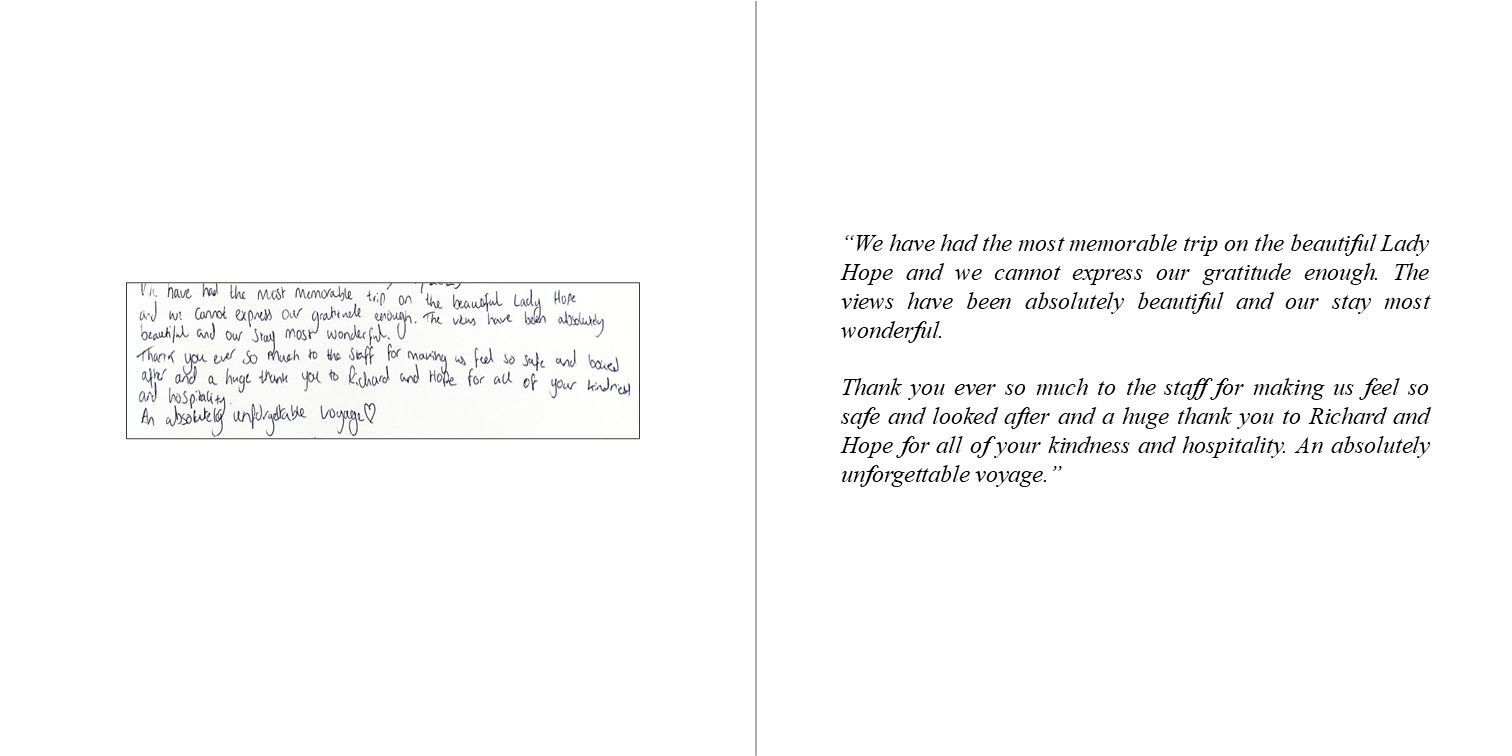 We have had the most memorable trip on the beautiful Lady Hope
and we cannot express our gratitude enough. The views have been absolutely
beautiful and our stay most wonderful.
Thank you ever so much to the staff for making us feel so safe and looked
after and a huge thank you to Richard and Hope for all of your kindness
and hospitality.
An absolutely unforgettable voyage♡
“We have had the most memorable trip on the beautiful Lady
Hope and we cannot express our gratitude enough. The
views have been absolutely beautiful and our stay most
wonderful.
Thank you ever so much to the staff for making us feel so
safe and looked after and a huge thank you to Richard and
Hope for all of your kindness and hospitality. An absolutely
unforgettable voyage.”